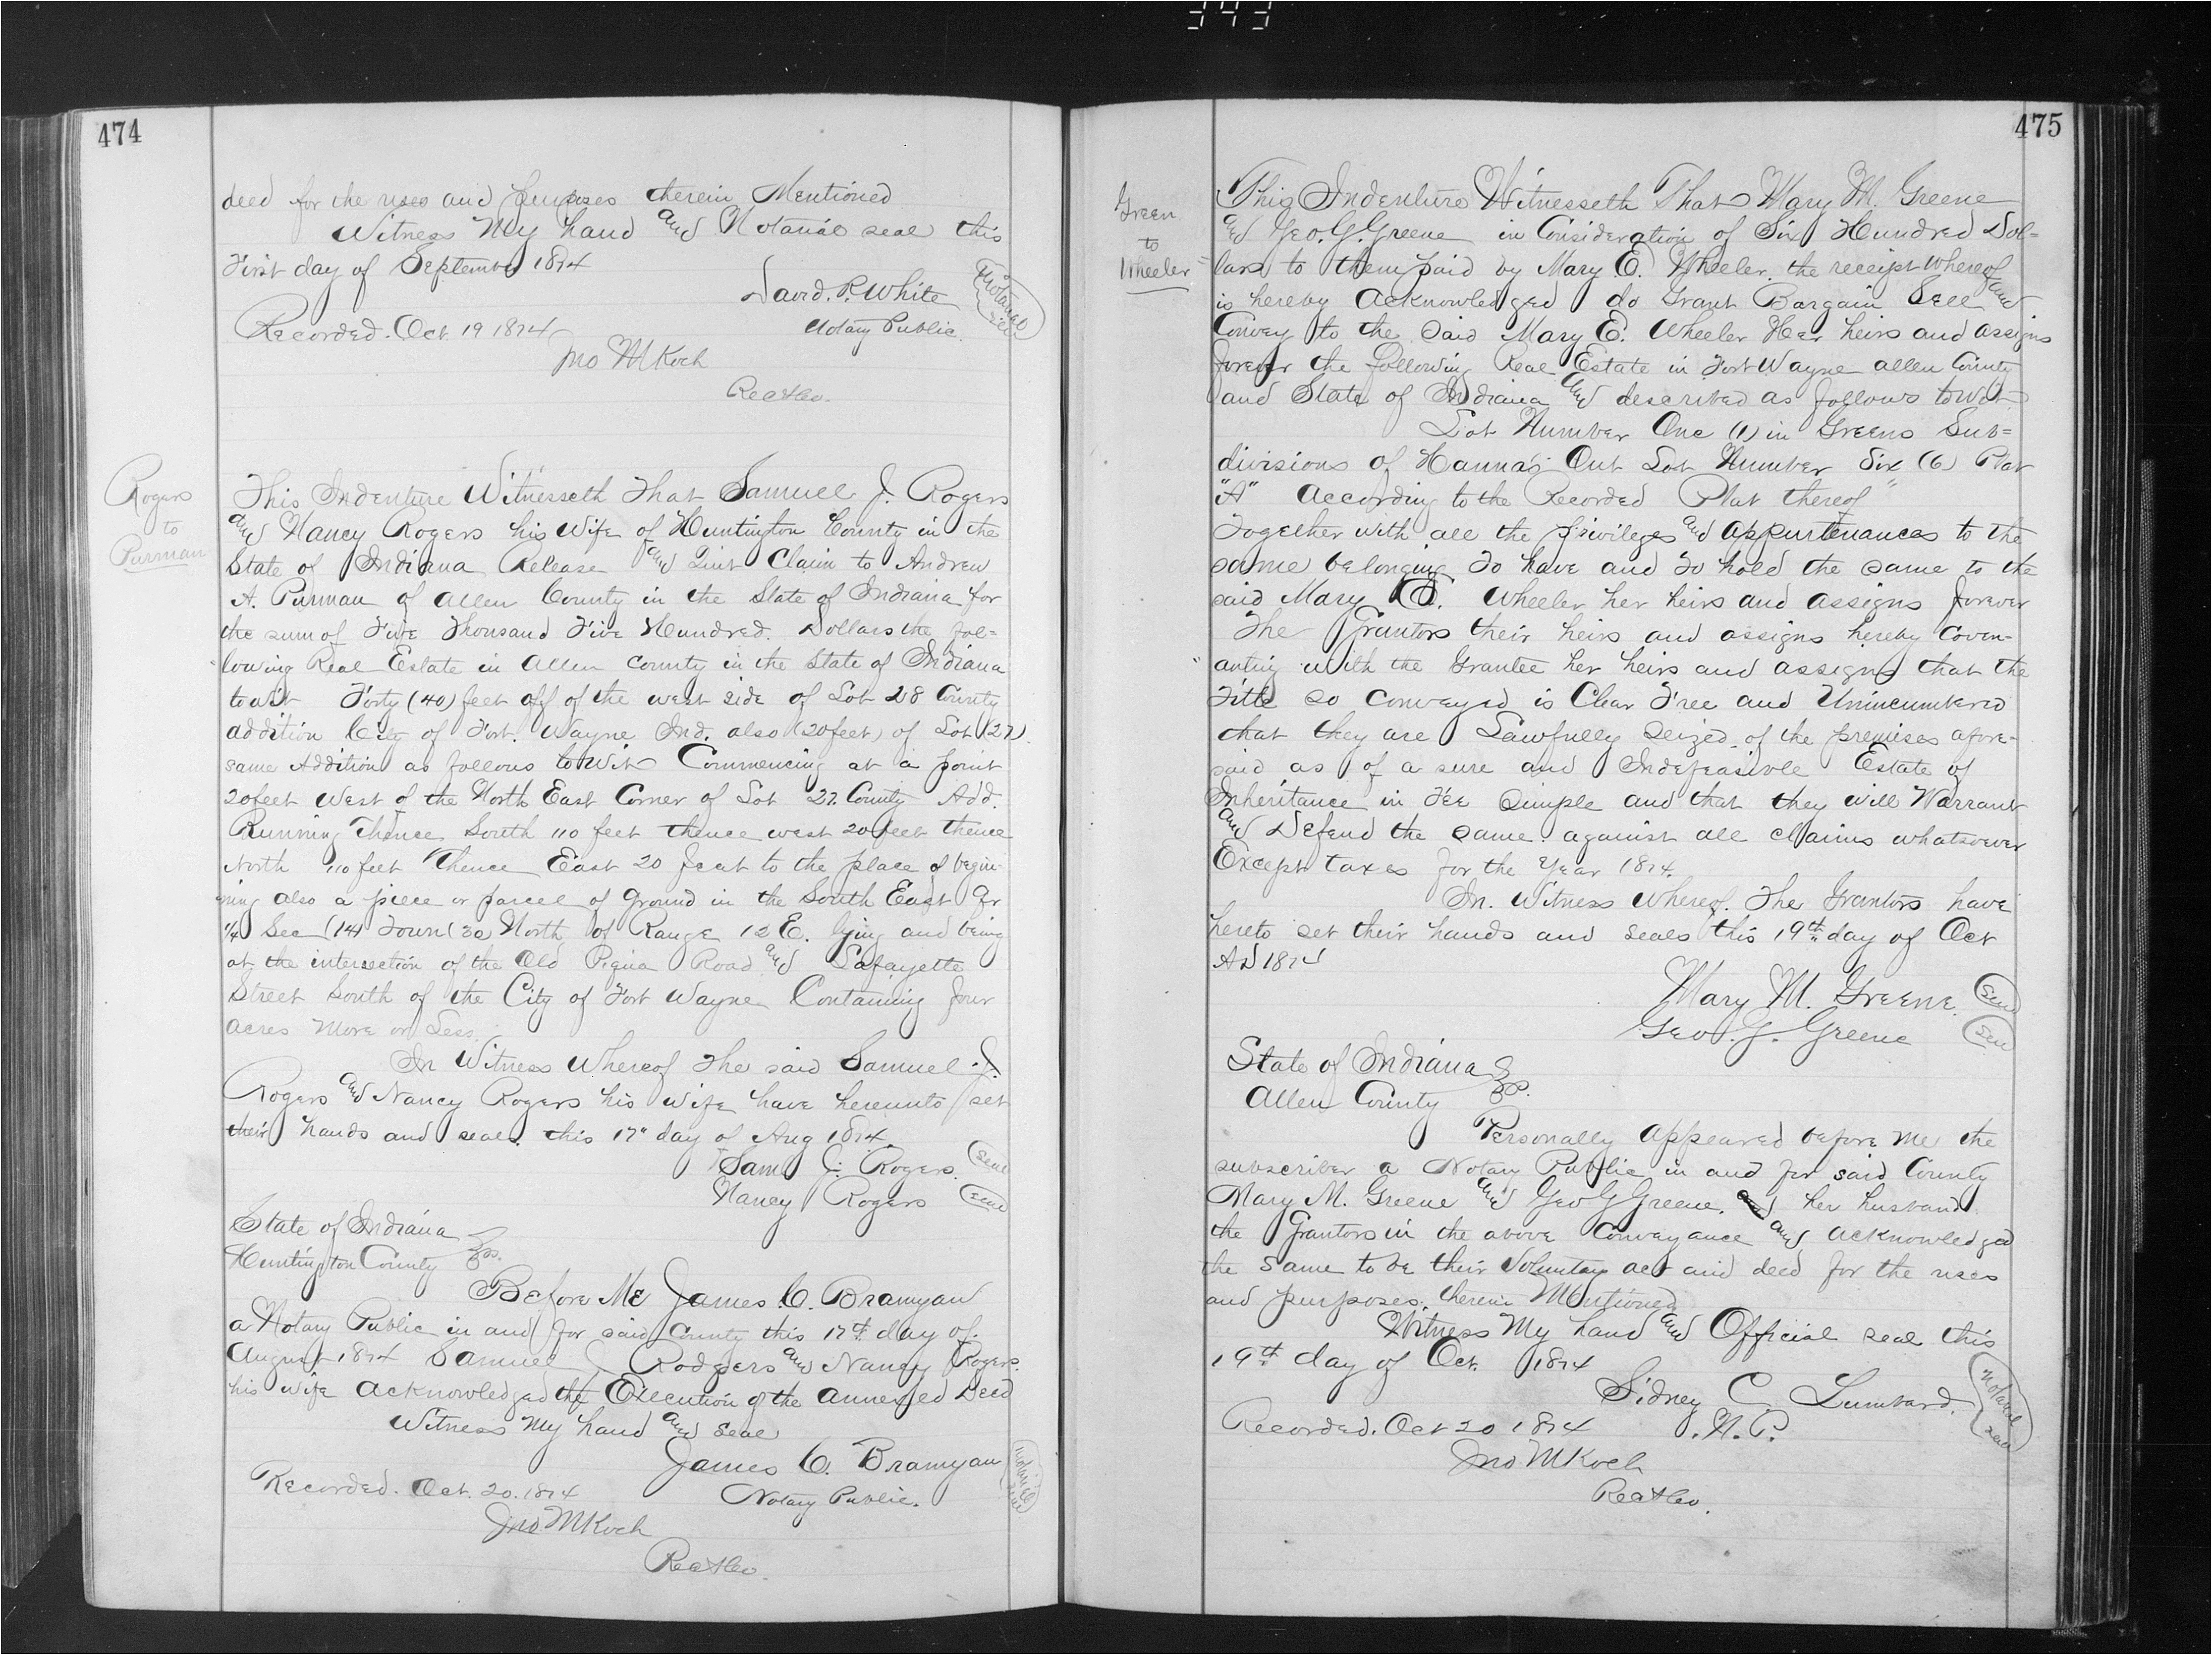 343
474
deed for the uses and purposes therein Mentioned
Witness My hand and Notarial seal this
First day of September 1874
David. P. White
Notary Public.
Notarial
seal
Recorded. Oct. 19 1874
Jno M Koch
Rec
Rogers
to
Purman
This Indenture Witnesseth That Samuel J. Rogers
and Nancy Rogers his Wife of Huntington County in the
State of Indiana Release and Quit Claim to Andrew
A. Purman of Allen County in the State of Indiana for
the sum of Five Thousand Five Hundred. Dollars the fol=
lowing Real Estate in Allen County in the State of Indiana
towit Forty (40) feet off of the west side of Lot 28 County
addition City of Fort. Wayne Ind. also (20 feet) of Lot (27)
same Addition as follows to Wit Commencing at a point
20 feet West of the North East Corner of Lot 27. County Add.
Running Thence South 110 feet thence west 20 feet thence
North 110 feet Thence East 20 feet to the place of begin-
ning also a piece or parcel of Ground in the South East Qr
1/4 Sec (14) Town (30) North of Range 12 E. lying and being
at the intersection of the Old Piqua Road and Lafayette
Street South of the City of Fort Wayne Containing four
acres more or Less.
In Witness Whereof The said Samuel J.
Rogers and Nancy Rogers his Wife have hereunto set
their hands and seals. this 17" day of Aug 1874.
Sam J. Rogers. Seal
Nancy Rogers Seal
State of Indiana
Huntington County ss.
Before Me James C. Branyan
a Notary Public in and for said County this 17th day of
August 1874 Samuel J Rodgers and Nancy Rogers
his wife acknowledged the Execution of the annexed Deed
Witness my hand and seal
James C. Branyan
Notary Public.
Notarial
seal
Recorded. Oct. 20. 1874
Jno M Koch
Rec
475
Green
to
Wheeler
This Indenture Witnesseth That Mary M. Greene
and Geo. G. Greene in Consideration of Six Hundred Dol=
lars to them paid by Mary E. Wheeler. the receipt whereof
is hereby acknowledged do Grant Bargain Sell and
Convey to the Said Mary E. Wheeler Her heirs and assigns
forever the following Real Estate in Fort Wayne Allen County
and State of Indiana and described as follows towit
Lot Number One (1) in Greens Sub=
divisions of Hanna's Out Lot Number Six (6) Plat
"A" According to the Recorded Plat thereof"
Together with all the privileges and appurtenances to the
same belonging To have and To hold the same to the
said Mary E. Wheeler her heirs and assigns forever
The Grantors their heirs and assigns hereby Coven-
anting with the Grantee her heirs and assigns that the
Title so conveyed is Clear Free and Unincumbered
that they are Lawfully Seized of the premises afore-
said as of a sure and Indefeasible Estate of
Inheritance in Fee Simple and that they will Warrant
and Defend the same against all claims whatsoever
Except taxes for the year 1874.
In. Witness Whereof. The Grantors have
hereto set their hands and seals this 19th day of Oct
AD 1874
Mary M. Greene. Seal
Geo. G. Greene Seal
State of Indiana
Allen County ss.
Personally appeared before me the
subscriber a Notary Public in and for said County
Mary M. Greene and Geo G Greene. her husband
the Grantors in the above Conveyance and acknowledged
the same to be their voluntary act and deed for the uses
and purposes. therein Mentioned
Witness My hand and Official seal this
19th day of Oct. 1874
Sidney C. Lumbard.
N. P.
Notarial
seal
Recorded. Oct 20 1874
Jno M Koch
Rec